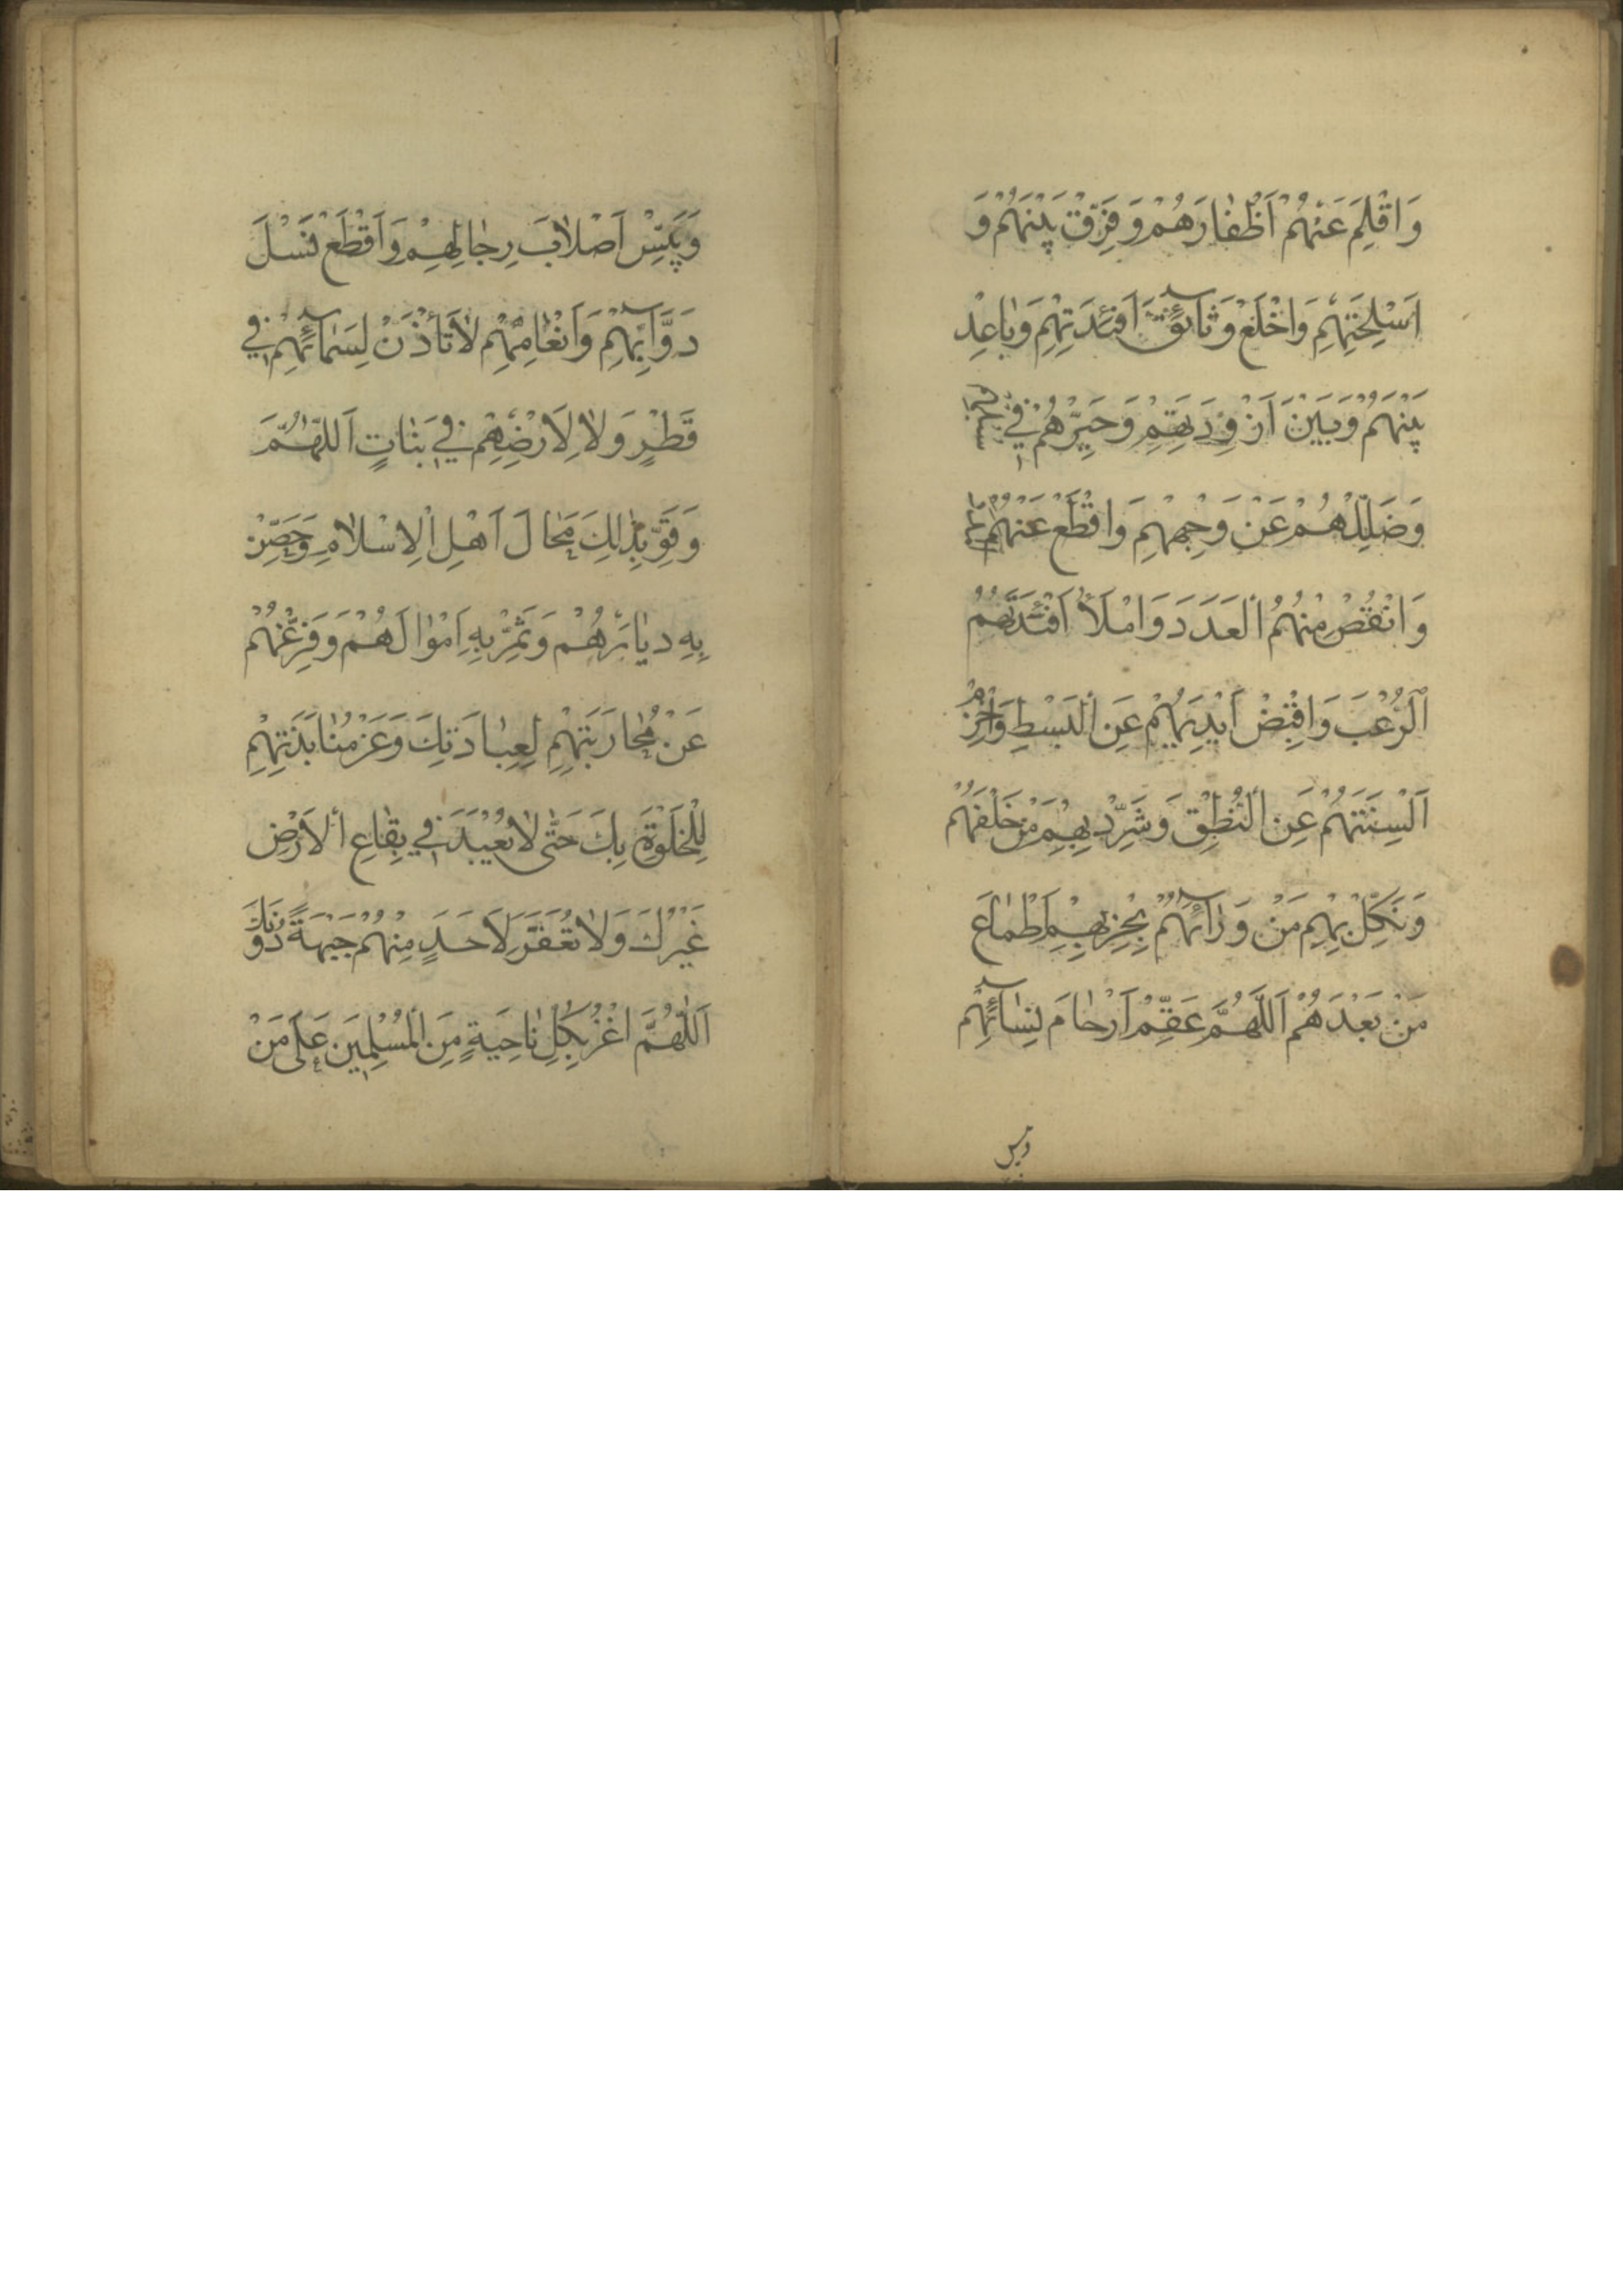 وَاقْلِمْ عَنْهُمْ اَظْفٰارَهُمْ وَفَرِّقْ بَيْنَهُمْ وَ
اَسْلِحَتِهِمْ وَاخْلَعْ وَثٰائِقَ اَفْئِدَتِهِمْ وَبٰاعِدْ
بَيْنَهُمْ وَبَيْنَ اَزْوِدَتِهِمْ وَحَيِّرْهُمْ فِي سُبُلِهِمْ
وَضَلِّلْهُمْ عَنْ وَجْهِهِمْ وَاقْطَعْ عَنْهُمُ
وَانْقُصْ مِنْهُمُ الْعَدَدَ وَامْلَأْ اَفْئِدَتَهُمُ
الرُّعْبَ وَاقْبِضْ اَيْدِيَهُمْ عَنِ الْبَسْطِ وَاخْزِمْ
اَلْسِنَتَهُمْ عَنِ النُّطْقِ وَشَرِّدْ بِهِمْ مَنْ خَلْفَهُمْ
وَنَكِّلْ بِهِمْ مَنْ وَرٰاءَهُمْ بِخِزْيِهِمْ اَطْمٰاعَ
مَنْ بَعْدَهُمْ اَللّٰهُمَّ عَقِّمْ اَرْحٰامَ نِسٰائِهِمْ
وَيَبِّسْ
وَيَبِّسْ اَصْلاٰبَ رِجٰالِهِمْ وَاَقْطَعْ نَسْلَ
دَوَّابِّهِمْ وَاَنْعٰامِهِمْ لاٰ تَأْذَنْ لِسَمٰائِهِمْ فِي
قَطْرٍ وَلاٰ لِاَرْضِهِمْ فِي نَبٰاتٍ اَللّٰهُمَّ
وَقَوِّ بِذٰلِكَ مَحٰالَ اَهْلِ الْاِسْلاٰمِ وَحَصِّنْ
بِهِ دِيٰارَهُمْ وَثَمِّرْ بِهِ اَمْوٰالَهُمْ وَفَرِّغْهُمْ
عَنْ مُحٰارَبَتِهِمْ لِعِبٰادَتِكَ وَعَنْ مُنٰابَذَتِهِمْ
لِلْخَلْوَةِ بِكَ حَتّٰى لاٰ يُعْبَدَ فِي بِقٰاعِ الْاَرْضِ
غَيْرُكَ وَلاٰ تُعَفَّرَ لِاَحَدٍ مِنْهُمْ جَبْهَةٌ دُونَكَ
اَللّٰهُمَّ اغْزُ بِكُلِّ نٰاحِيَةٍ مِنَ الْمُسْلِمِينَ عَلٰى مَنْ